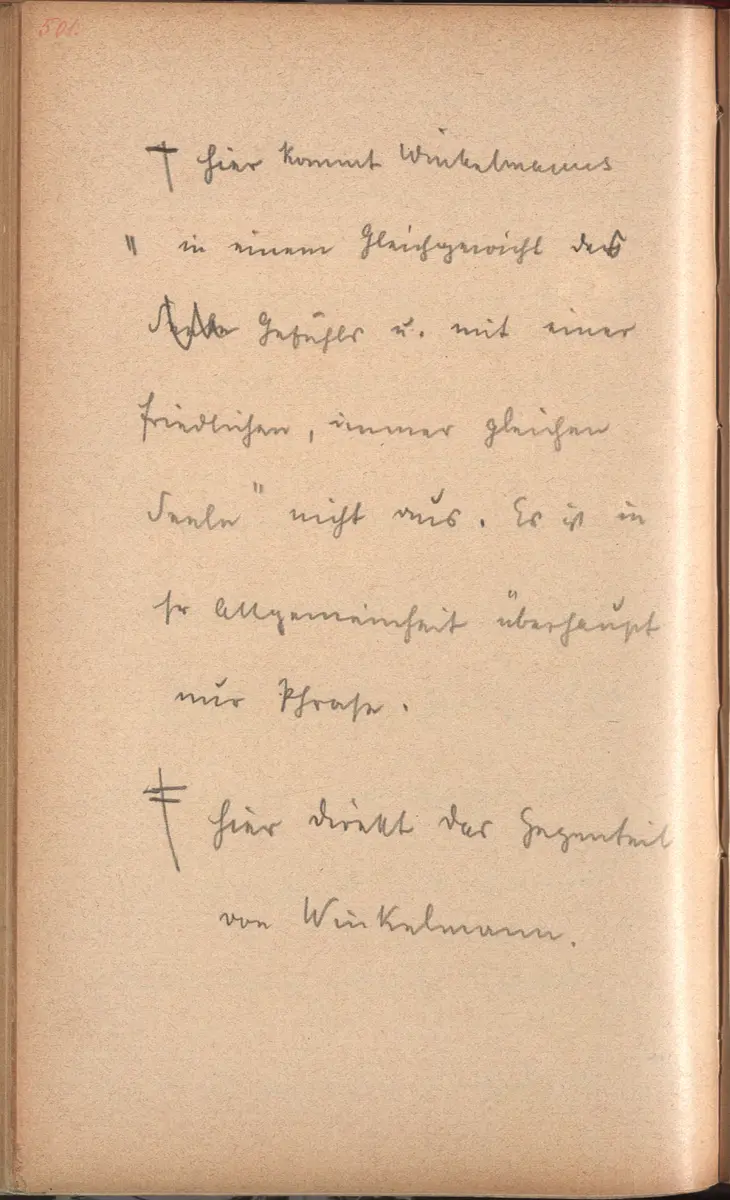 501.
† hier kommt Winkelmanns
" in einem Gleichgewicht des
Seele Gefühls u. mit einer
friedlichen, immer gleichen
Seele" nicht aus. Es ist in
sr Allgemeinheit überhaupt
nur Phrase.
‡ hier direkt das Gegenteil
von Winkelmann.